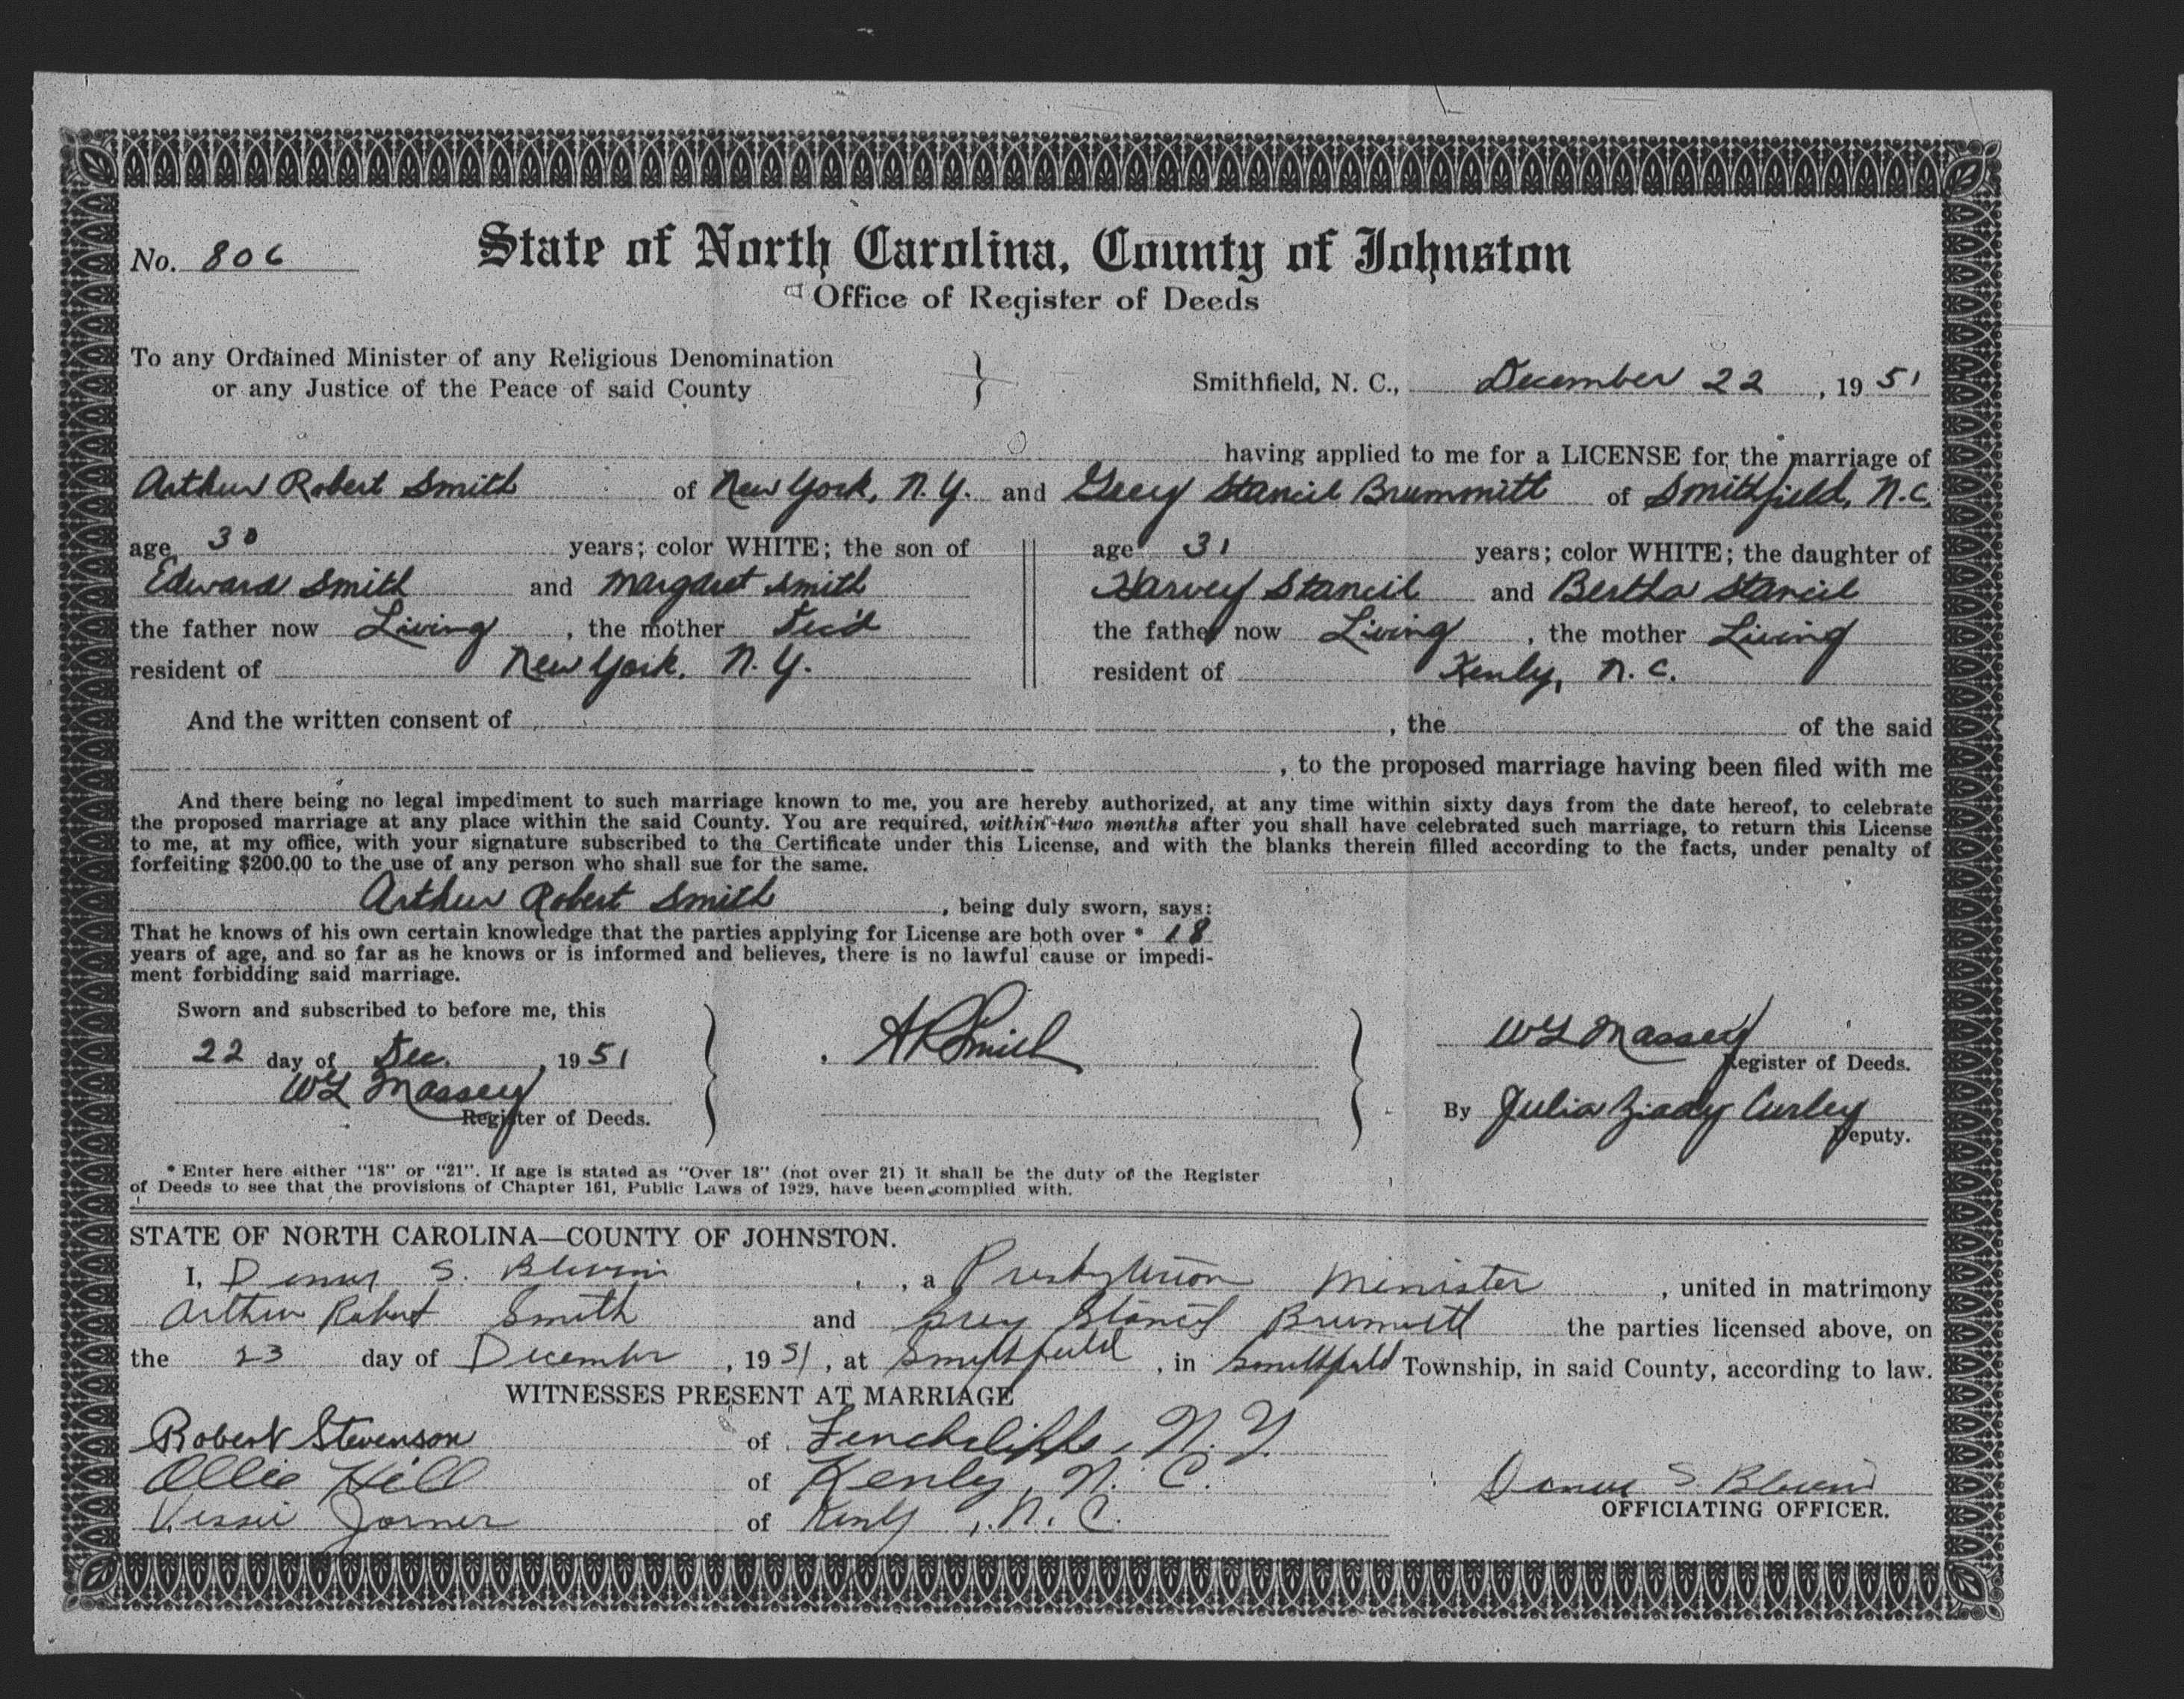 No. 806
State of North Carolina, County of Johnston
Office of Register of Deeds
To any Ordained Minister of any Religious Denomination
or any Justice of the Peace of said County
Smithfield, N. C., December 22, 1951
having applied to me for a LICENSE for the marriage of
Arthur Robert Smith of New York, N.Y. and Stancil Brummitt of Smithfield, N.C.
age 30 years; color WHITE; the son of
Edward Smith and Margaret Smith
the father now Living, the mother Dec'd
resident of New York, N.Y.
age 31 years; color WHITE; the daughter of
Harvey Stancil and Bertha Stancil
the father now Living, the mother Living
resident of Kenly, N.C.
And the written consent of , the of the said
, to the proposed marriage having been filed with me
And there being no legal impediment to such marriage known to me, you are hereby authorized, at any time within sixty days from the date hereof, to celebrate
the proposed marriage at any place within the said County. You are required, within two months after you shall have celebrated such marriage, to return this License
to me, at my office, with your signature subscribed to the Certificate under this License, and with the blanks therein filled according to the facts, under penalty of
forfeiting $200.00 to the use of any person who shall sue for the same.
Arthur Robert Smith, being duly sworn, says:
That he knows of his own certain knowledge that the parties applying for License are both over * 18
years of age, and so far as he knows or is informed and believes, there is no lawful cause or impedi-
ment forbidding said marriage.
Sworn and subscribed to before me, this
22 day of Dec., 1951
WL Massey
Register of Deeds.
ARSmith
WL Massey
Register of Deeds.
By Julia Curley
Deputy.
* Enter here either "18" or "21". If age is stated as "Over 18" (not over 21) it shall be the duty of the Register
of Deeds to see that the provisions of Chapter 161, Public Laws of 1929, have been complied with.
STATE OF NORTH CAROLINA—COUNTY OF JOHNSTON.
I, S. , a Presbyterian Minister, united in matrimony
Arthur Robert Smith and Grey Stancil Brummitt the parties licensed above, on
the 23 day of December, 1951, at Smithfield, in Smithfield Township, in said County, according to law.
WITNESSES PRESENT AT MARRIAGE
Robert Stevenson of N.Y.
Ollie Hill of Kenly, N.C.
of Kenly, N.C.
S.
OFFICIATING OFFICER.